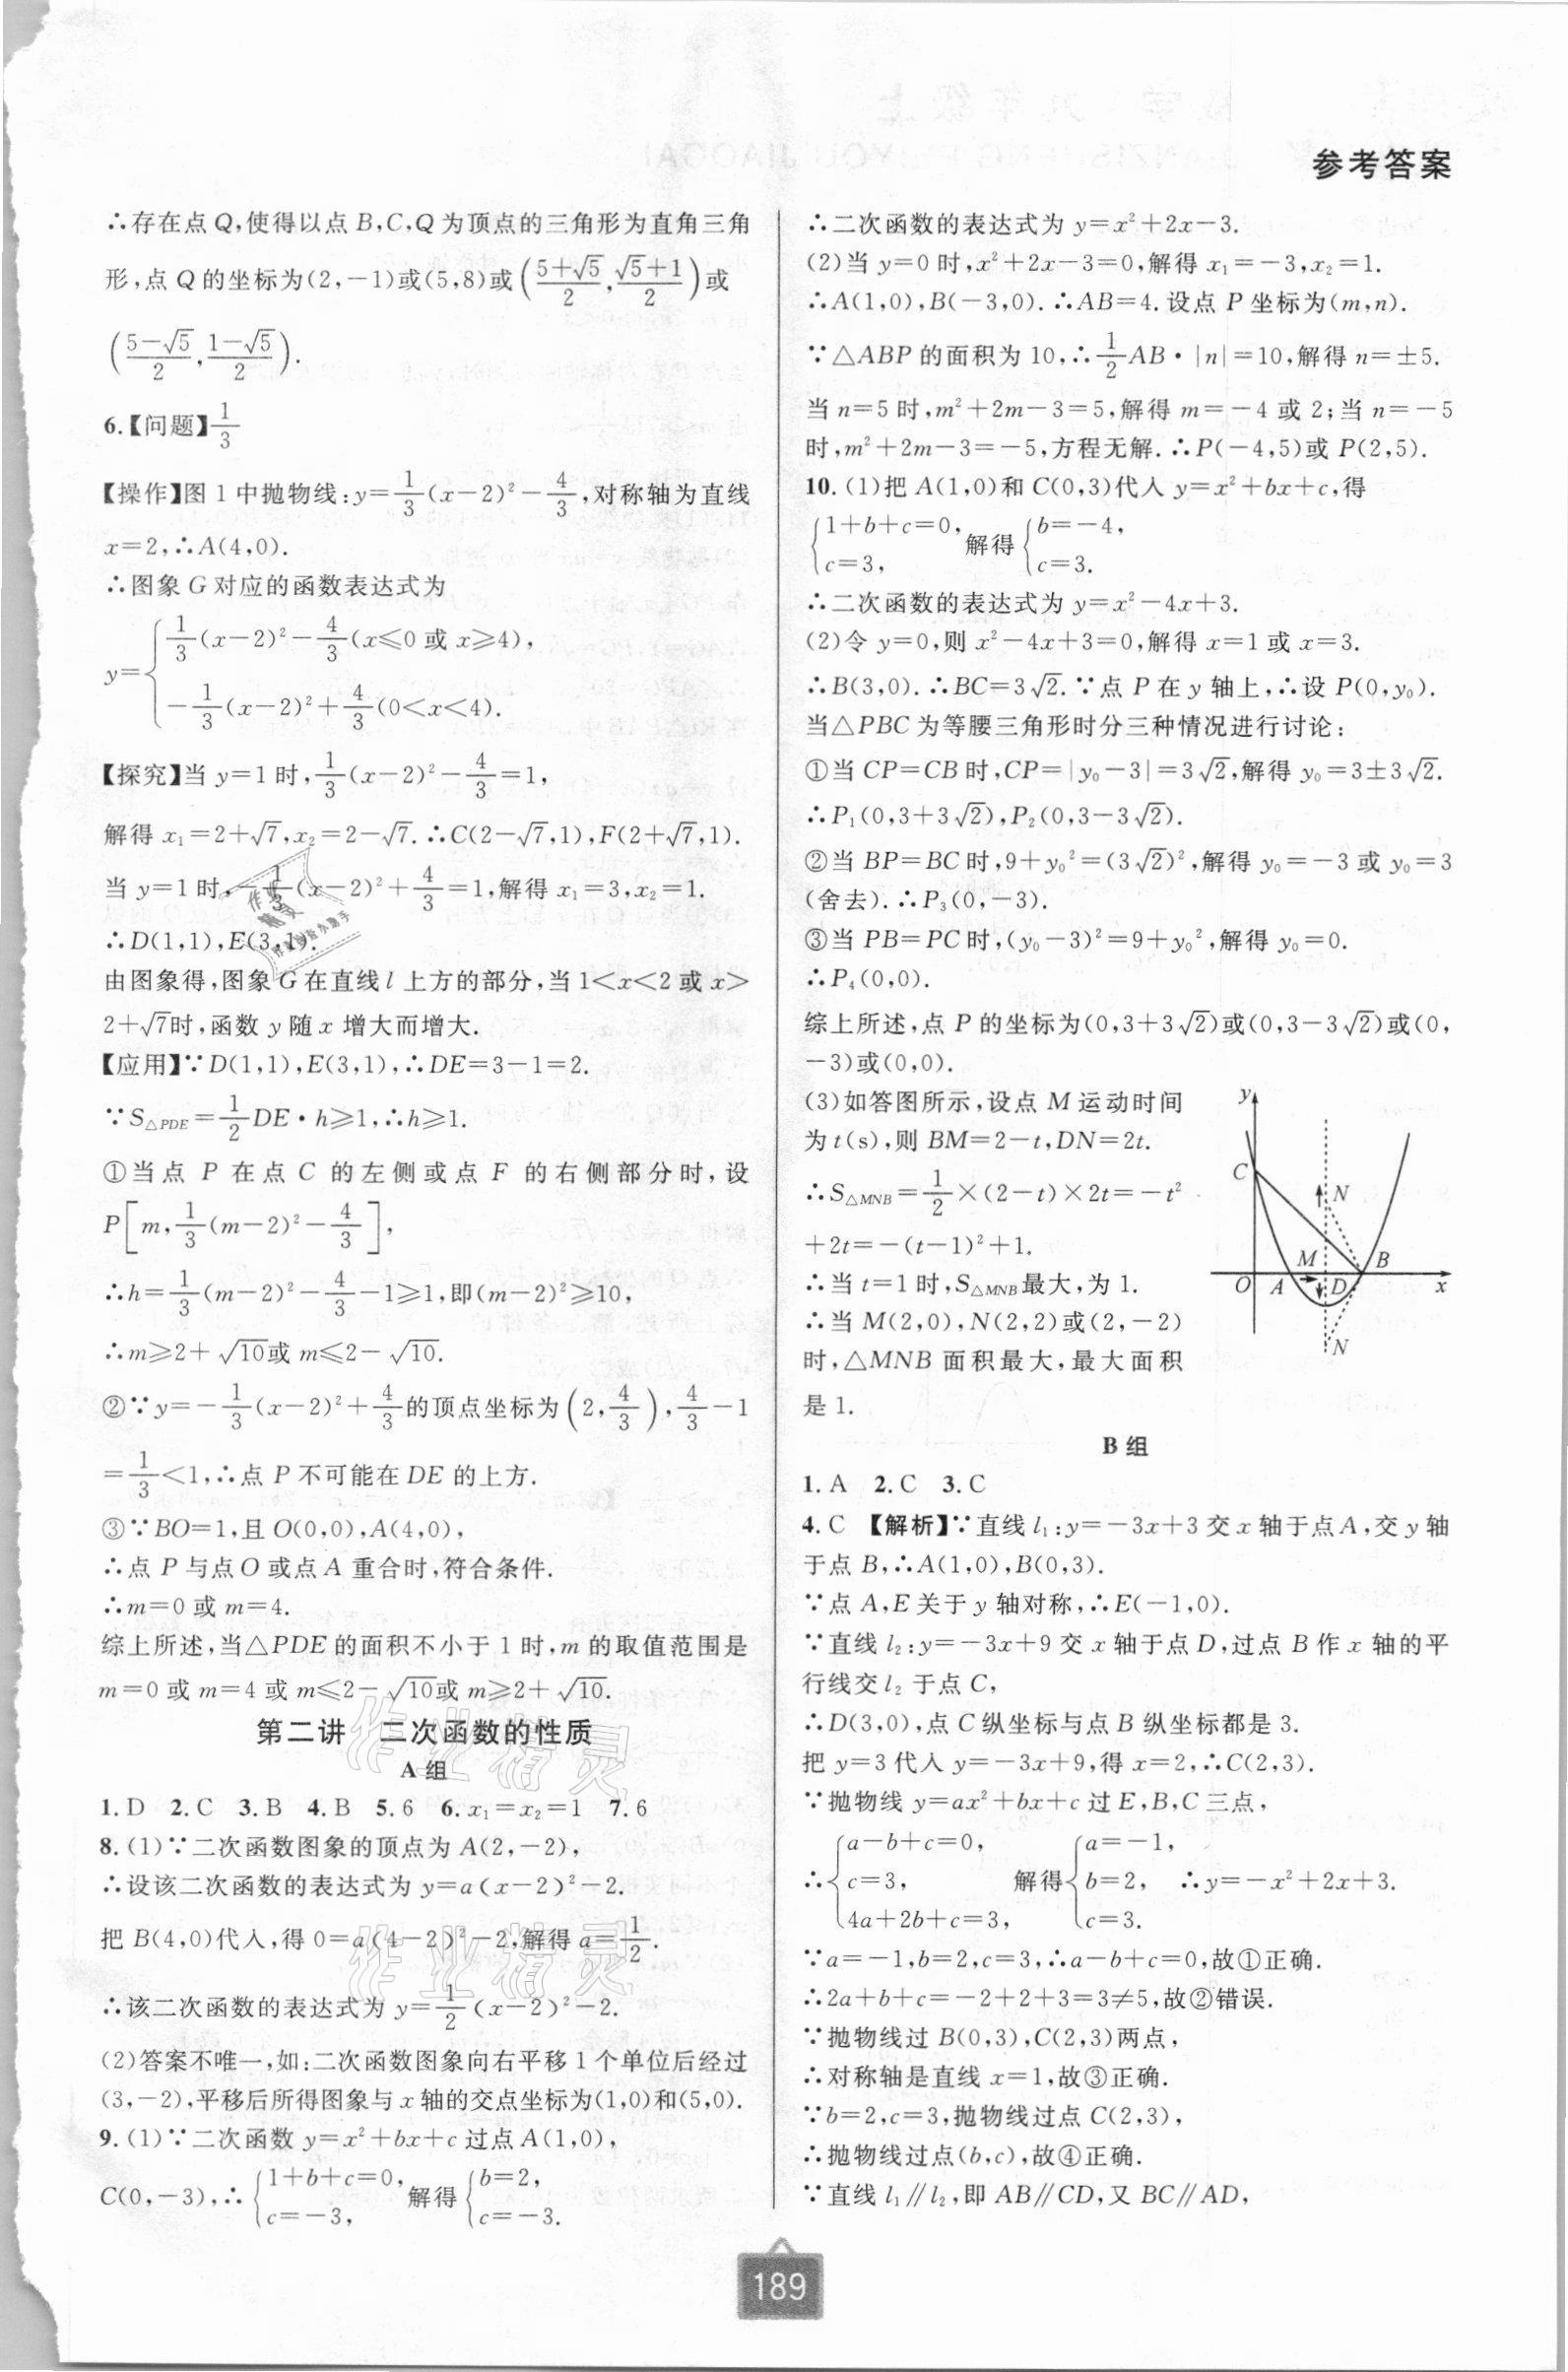 参考答案
∴存在点 Q,使得以点 B,C,Q 为顶点的三角形为直角三角
形,点 Q 的坐标为(2,-1)或(5,8)或((5+√5)/2,(√5+1)/2)或
((5-√5)/2,(1-√5)/2).
6.【问题】1/3
【操作】图 1 中抛物线:y=1/3(x-2)²-4/3,对称轴为直线
x=2,∴A(4,0).
∴图象 G 对应的函数表达式为
y={1/3(x-2)²-4/3(x≤0 或 x≥4),
-1/3(x-2)²+4/3(0<x<4).
【探究】当 y=1 时,1/3(x-2)²-4/3=1,
解得 x₁=2+√7,x₂=2-√7.∴C(2-√7,1),F(2+√7,1).
当 y=1 时,-1/3(x-2)²+4/3=1,解得 x₁=3,x₂=1.
∴D(1,1),E(3,1).
由图象得,图象 G 在直线 l 上方的部分,当 1<x<2 或 x>
2+√7时,函数 y 随 x 增大而增大.
【应用】∵D(1,1),E(3,1),∴DE=3-1=2.
∵S△PDE=1/2DE·h≥1,∴h≥1.
①当点 P 在点 C 的左侧或点 F 的右侧部分时,设
P[m,1/3(m-2)²-4/3],
∴h=1/3(m-2)²-4/3-1≥1,即(m-2)²≥10,
∴m≥2+√10或 m≤2-√10.
②∵y=-1/3(x-2)²+4/3的顶点坐标为(2,4/3),4/3-1
=1/3<1,∴点 P 不可能在 DE 的上方.
③∵BO=1,且 O(0,0),A(4,0),
∴点 P 与点 O 或点 A 重合时,符合条件.
∴m=0 或 m=4.
综上所述,当△PDE 的面积不小于 1 时,m 的取值范围是
m=0 或 m=4 或 m≤2-√10或 m≥2+√10.
第二讲 二次函数的性质
A 组
1. D 2. C 3. B 4. B 5. 6 6. x₁=x₂=1 7. 6
8. (1)∵二次函数图象的顶点为 A(2,-2),
∴设该二次函数的表达式为 y=a(x-2)²-2.
把 B(4,0)代入,得 0=a(4-2)²-2,解得 a=1/2.
∴该二次函数的表达式为 y=1/2(x-2)²-2.
(2)答案不唯一,如:二次函数图象向右平移 1 个单位后经过
(3,-2),平移后所得图象与 x 轴的交点坐标为(1,0)和(5,0).
9. (1)∵二次函数 y=x²+bx+c 过点 A(1,0),
C(0,-3),∴{1+b+c=0, c=-3, 解得{b=2, c=-3.
∴二次函数的表达式为 y=x²+2x-3.
(2)当 y=0 时,x²+2x-3=0,解得 x₁=-3,x₂=1.
∴A(1,0),B(-3,0).∴AB=4.设点 P 坐标为(m,n).
∵△ABP 的面积为 10,∴1/2AB·|n|=10,解得 n=±5.
当 n=5 时,m²+2m-3=5,解得 m=-4 或 2;当 n=-5
时,m²+2m-3=-5,方程无解.∴P(-4,5)或 P(2,5).
10. (1)把 A(1,0)和 C(0,3)代入 y=x²+bx+c,得
{1+b+c=0, c=3, 解得{b=-4, c=3.
∴二次函数的表达式为 y=x²-4x+3.
(2)令 y=0,则 x²-4x+3=0,解得 x=1 或 x=3.
∴B(3,0).∴BC=3√2.∵点 P 在 y 轴上,∴设 P(0,y₀).
当△PBC 为等腰三角形时分三种情况进行讨论:
①当 CP=CB 时,CP=|y₀-3|=3√2,解得 y₀=3±3√2.
∴P₁(0,3+3√2),P₂(0,3-3√2).
②当 BP=BC 时,9+y₀²=(3√2)²,解得 y₀=-3 或 y₀=3
(舍去).∴P₃(0,-3).
③当 PB=PC 时,(y₀-3)²=9+y₀²,解得 y₀=0.
∴P₄(0,0).
综上所述,点 P 的坐标为(0,3+3√2)或(0,3-3√2)或(0,
-3)或(0,0).
(3)如答图所示,设点 M 运动时间
为 t(s),则 BM=2-t,DN=2t.
∴S△MNB=1/2×(2-t)×2t=-t²
+2t=-(t-1)²+1.
∴当 t=1 时,S△MNB最大,为 1.
∴当 M(2,0),N(2,2)或(2,-2)
时,△MNB 面积最大,最大面积
是 1.
y
C
N
M
B
O
A
D
x
N
B 组
1. A 2. C 3. C
4. C 【解析】∵直线 l₁:y=-3x+3 交 x 轴于点 A,交 y 轴
于点 B,∴A(1,0),B(0,3).
∵点 A,E 关于 y 轴对称,∴E(-1,0).
∵直线 l₂:y=-3x+9 交 x 轴于点 D,过点 B 作 x 轴的平
行线交 l₂ 于点 C,
∴D(3,0),点 C 纵坐标与点 B 纵坐标都是 3.
把 y=3 代入 y=-3x+9,得 x=2,∴C(2,3).
∵抛物线 y=ax²+bx+c 过 E,B,C 三点,
∴{a-b+c=0, c=3, 4a+2b+c=3, 解得{a=-1, b=2, c=3. ∴y=-x²+2x+3.
∵a=-1,b=2,c=3,∴a-b+c=0,故①正确.
∴2a+b+c=-2+2+3=3≠5,故②错误.
∵抛物线过 B(0,3),C(2,3)两点,
∴对称轴是直线 x=1,故③正确.
∵b=2,c=3,抛物线过点 C(2,3),
∴抛物线过点(b,c),故④正确.
∵直线 l₁∥l₂,即 AB∥CD,又 BC∥AD,
189
作业精灵
作业精灵